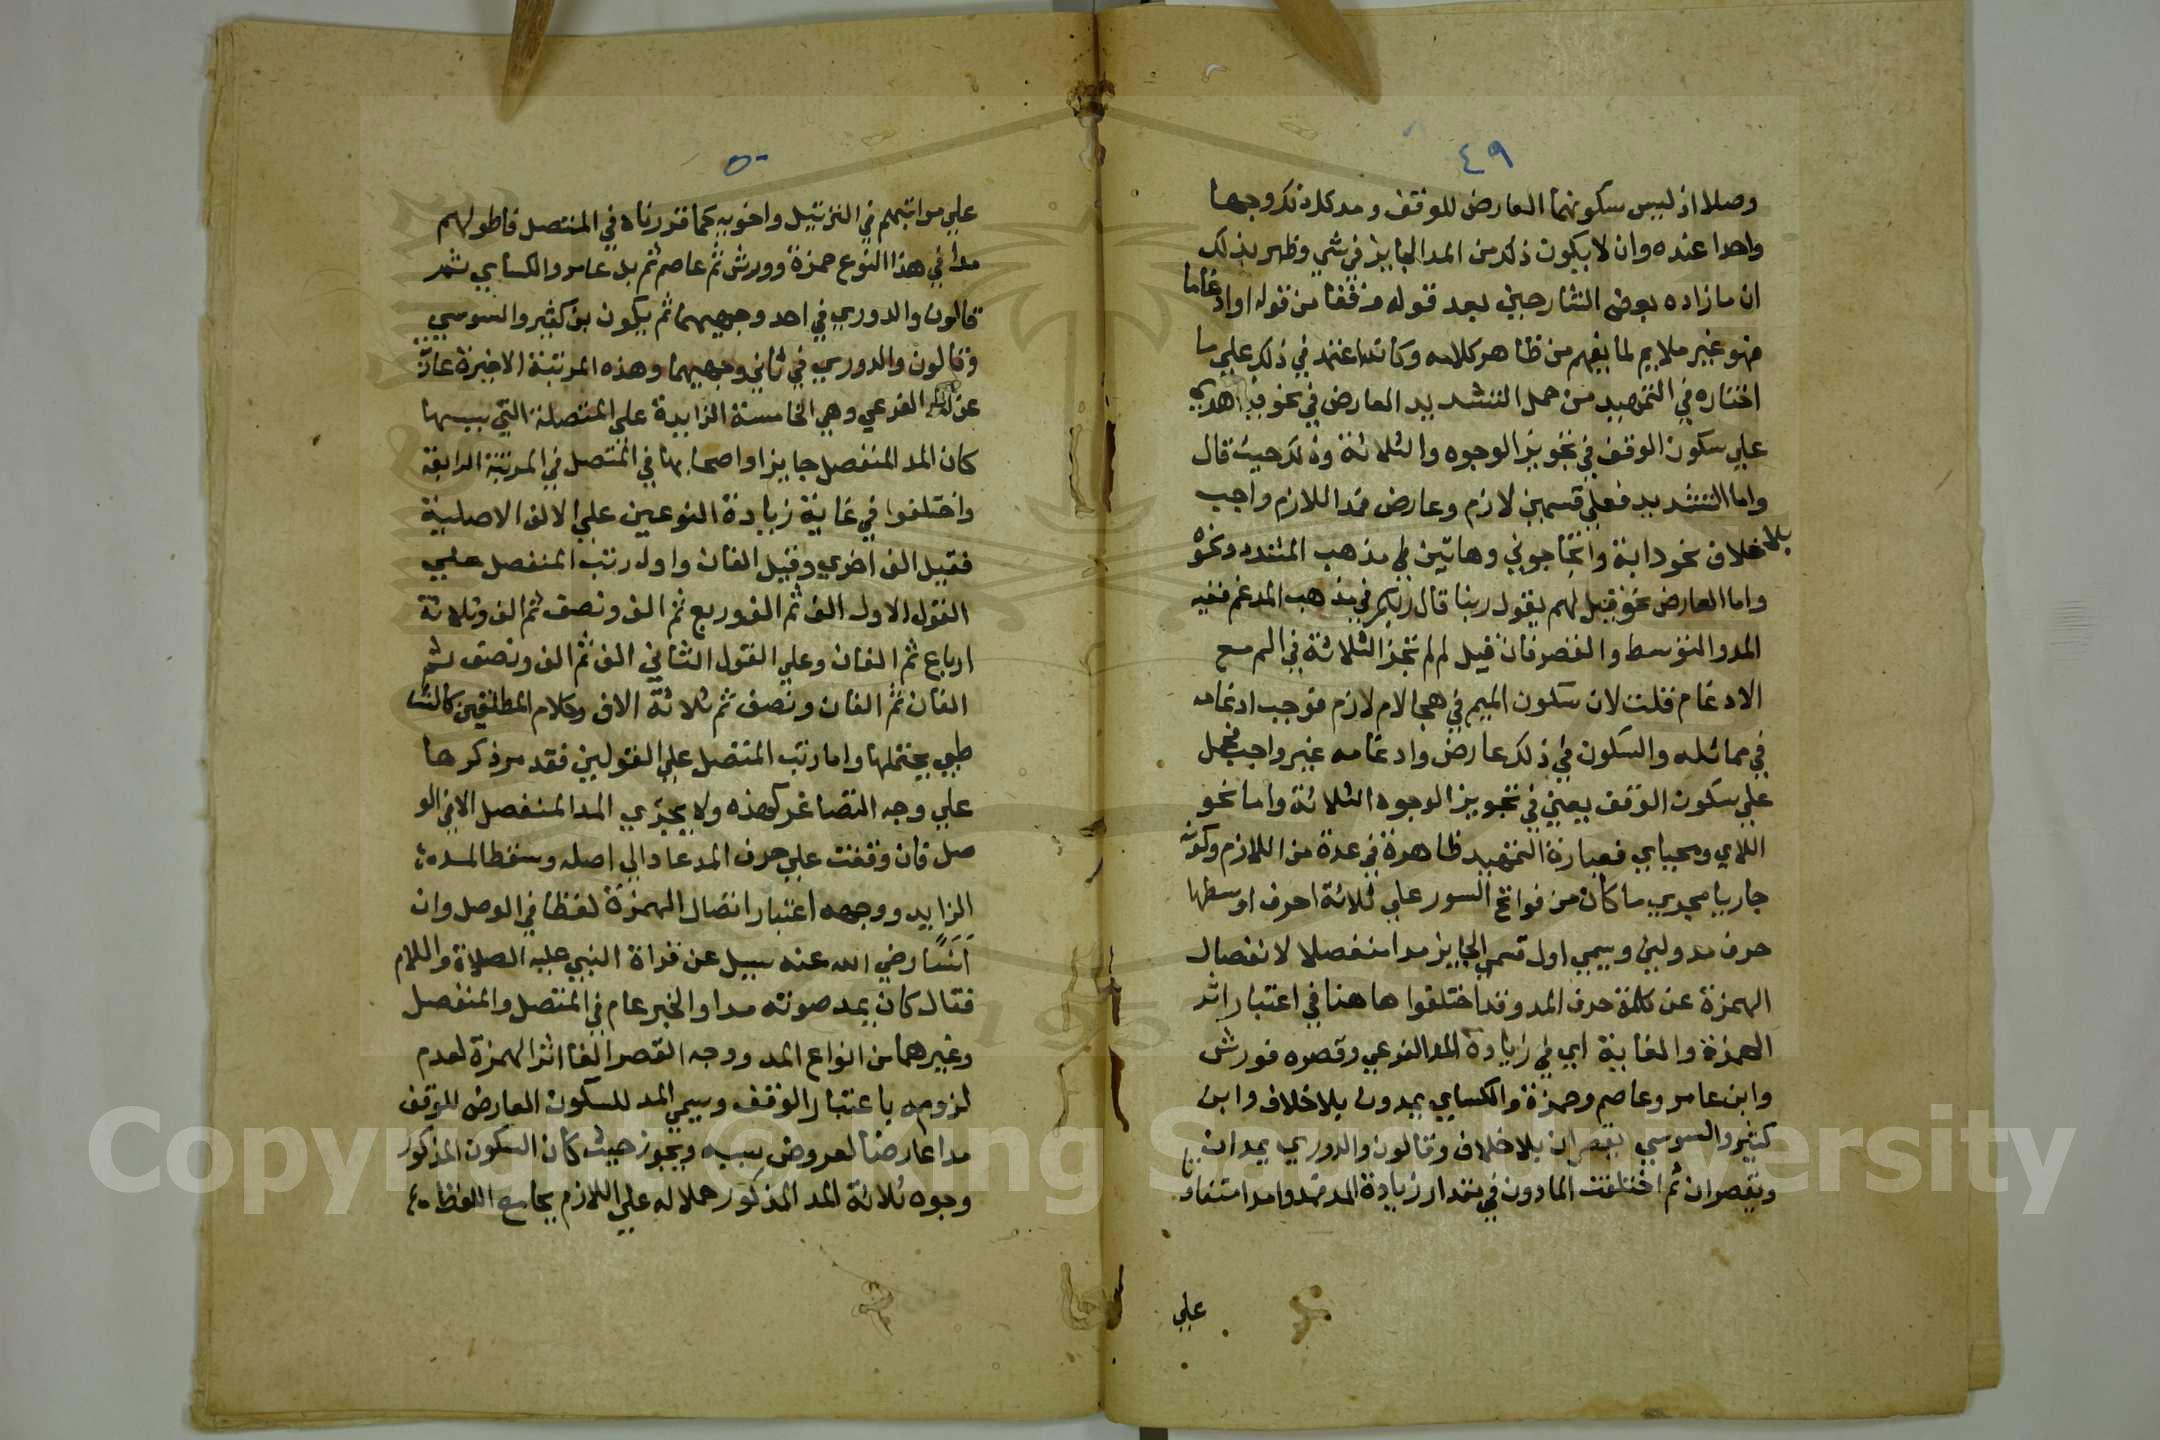 ٤٩
وصلا اذ ليس سكونهما العارض للوقف ومد كل ذلك وجها
واحدا عنده وان لا يكون ذلك من المد الجايز في شي وظهر بذلك
ان ما زاده بعض الشارحين بعد قوله وقفا من قوله او ادغاما
فهو غير ملايم لما يفهم من ظاهر كلامه وكانه اعتمد في ذلك علي ما
اختاره في التمهيد من حمل التشديد العارض في نحو فيه هدي
علي سكون الوقف في تجويز الوجوه والثلاثة وذلك حيث قال
واما التشديد فعلي قسمين لازم وعارض فمد اللازم واجب
بلا خلاف نحو دابة واتحاجوني وهاتين علي مذهب المشدد ونحوه
واما العارض نحو قيل لهم يقول ربنا قال ربكم في مذهب المدغم ففيه
المد والتوسط والقصر فان قيل لم لم تجز الثلاثة في الم مع
الادغام قلت لان سكون الميم في هجا لام لازم فوجب ادغامه
في مماثله والسكون في ذلك عارض وادغامه غير واجب فحمل
علي سكون الوقف يعني في تجويز الوجوه الثلاثة واما نحو
اللاي ومحياي فعبارة التمهيد ظاهرة في عدة من اللازم وكونه
جاريا مجري ما كان من فواتح السور علي ثلاثة احرف اوسطها
حرف مد ولين ويسمي اول قسمي الجايز مدا منفصلا لانفصال
الهمزة عن كلمة حرف المد وقد اختلفوا ها هنا في اعتبار اثر
الهمزة والغاية اي في زيادة المد الفرعي وقصره فورش
وابن عامر وعاصم وحمزة والكسايي يمدون بلا خلاف وابن
كثير والسوسي يقصران بلا خلاف وقالون والدوري يمدان
ويقصران ثم اختلفت المادون في مقدار زيادة المد فمدوا مدا متفاوتا
علي
٥٠
علي مراتبهم في الترتيل واخويه كما قررناه في المتصل فاطولهم
مدا في هذا النوع حمزة وورش ثم عاصم ثم بن عامر والكسايي ثم
قالون والدوري في احد وجهيهما ثم يكون بن كثير والسوسي
وقالون والدوري في ثاني وجهيهما وهذه المرتبة الاخيرة عارية
عن المد الفرعي وهي الخامسة الزايدة علي المتصلة التي بسببها
كان المد المنفصل جايزا واصحابها في المتصل في المرتبة الرابعة
واختلفوا في غاية زيادة النوعين علي الالف الاصلية
فقيل الف اخري وقيل الفان واول رتب المنفصل علي
القول الاول الف ثم الف وربع ثم الف ونصف ثم الف وثلاثة
ارباع ثم الفان وعلي القول الثاني الف ثم الف ونصف ثم
الفان ثم الفان ونصف ثم ثلاثة الاف وكلام المطلقين كالشا
طبي يحتملها واما رتب المتصل علي القولين فقد مر ذكرها
علي وجه التصاغر كهذه ولا يجزي المد المنفصل الا في الو
صل فان وقفت علي حرف المد عاد الي اصله وسقط المده
الزايد ووجهه اعتبار اتصال الهمزة لفظا في الوصل وان
اَنَسًا رضي الله عنه سيل عن قراة النبي عليه الصلاة واللام
فقال كان يمد صوته مدا والخبر عام في المتصل والمنفصل
وغيرهما من انواع المد ووجه القصر الغا اثر الهمزة لعدم
لزومه باعتبار الوقف ويسمي المد للسكون العارض للوقف
مدا عارضا لعروض سببه ويجوز حيث كان السكون المذكور
وجوه ثلاثة المد المذكور حملا له علي اللازم بجامع اللفظ
Copyright © King Saud University